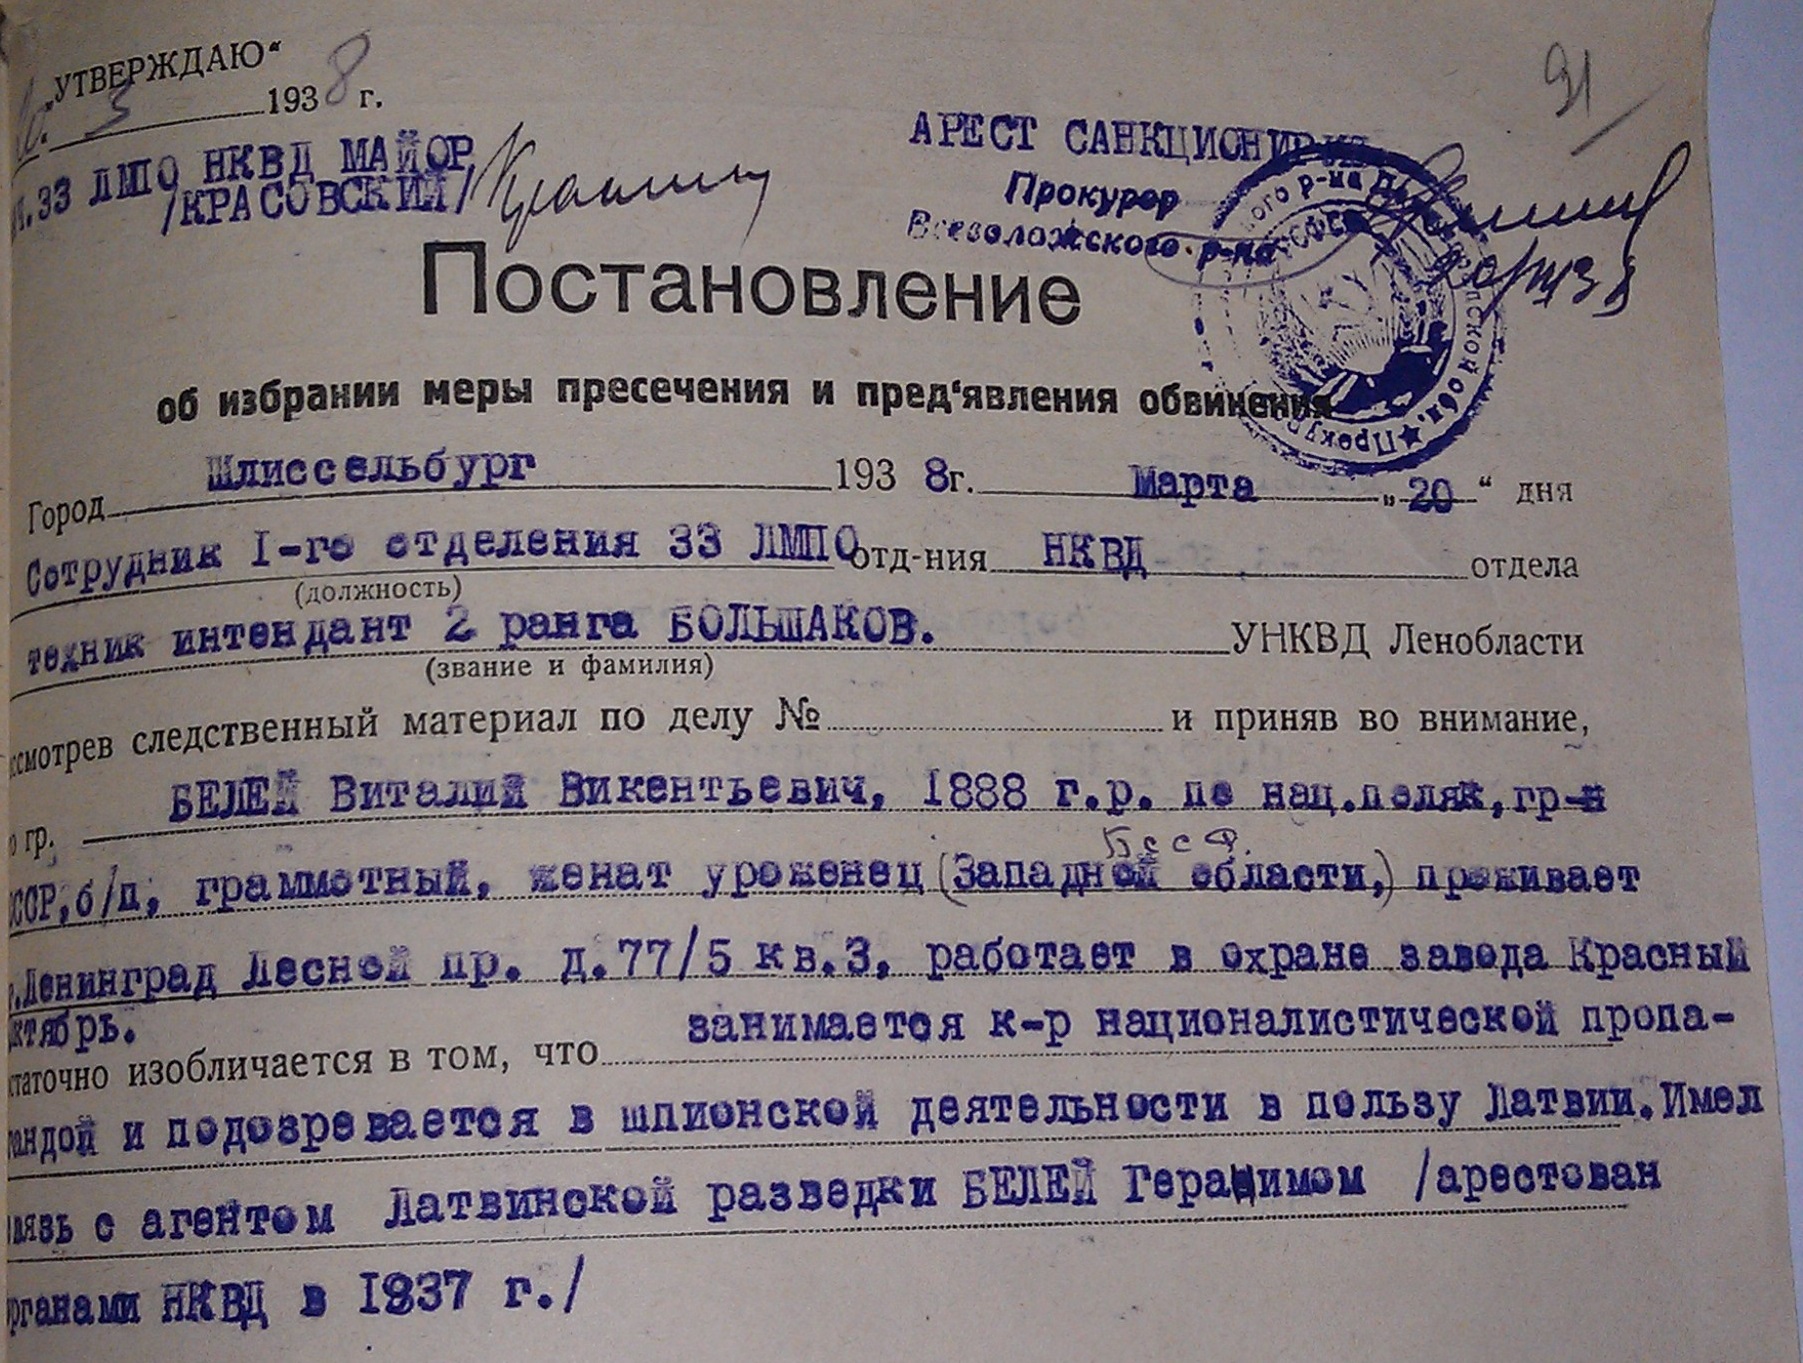 „УТВЕРЖДАЮ“
3 1938 г.
33 ЛМПО НКВД МАЙОР
/КРАСОВСКИЙ/
91
АРЕСТ САНКЦИОНИРУЮ
Прокурор
Всеволожского р-на
20/III 38
Постановление
об избрании меры пресечения и пред‘явления обвинения
Город Шлиссельбург 193 8г. Марта „20“ дня
Сотрудник I-го отделения 33 ЛМПО отд-ния НКВД отдела
(должность)
техник интендант 2 ранга БОЛЬШАКОВ. УНКВД Ленобласти
(звание и фамилия)
ссмотрев следственный материал по делу № и приняв во внимание,
о гр. БЕЛЕЙ Виталий Викентьевич, 1888 г.р. по нац.поляк, гр-н
БССР.
СССР, б/п, граммотный, женат уроженец (Западной области,) проживает
г.Ленинград Лесной пр. д.77/5 кв.3, работает в охране завода Красный
ктябрь.
статочно изобличается в том, что занимается к-р националистической пропа-
гандой и подозревается в шпионской деятельности в пользу Латвии. Имел
связь с агентом Латвинской разведки БЕЛЕЙ Герацимом /арестован
органами НКВД в 1937 г./